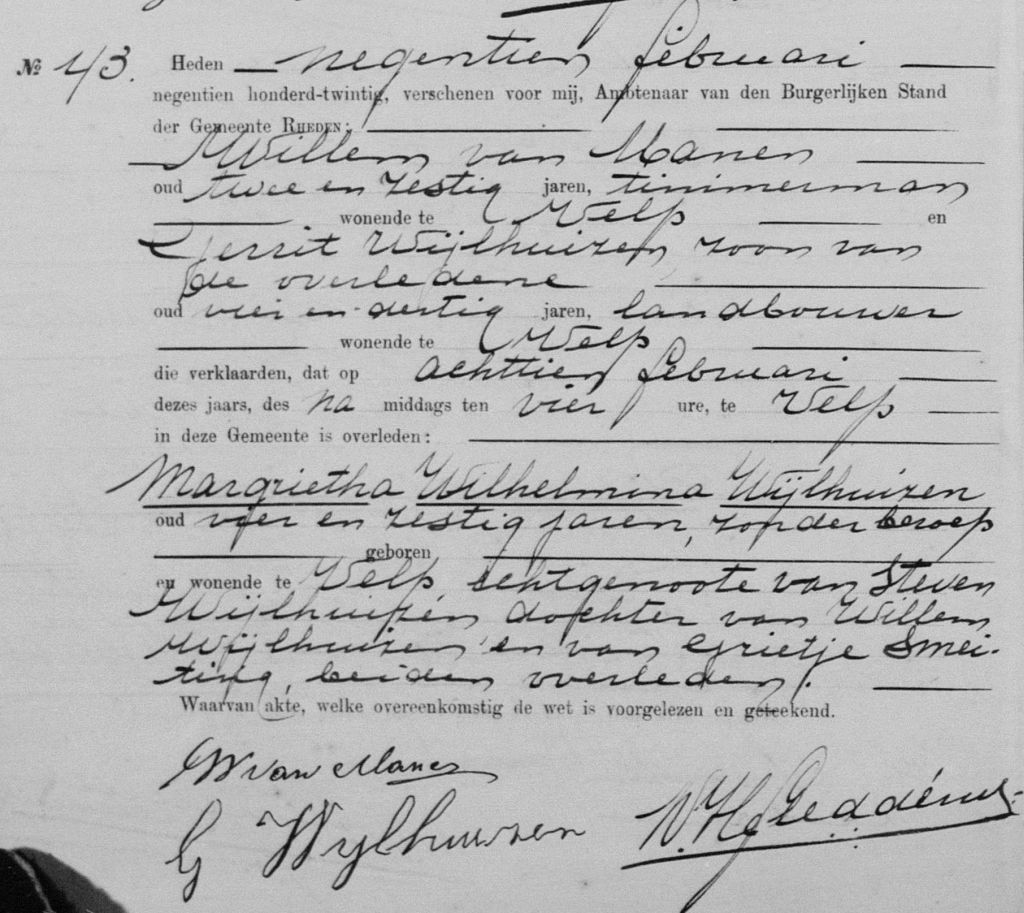 № 43. Heden negentien februari
negentien honderd-twintig, verschenen voor mij, Ambtenaar van den Burgerlijken Stand
der Gemeente RHEDEN:
Willem van Manen
oud twee en zestig jaren, timmerman
wonende te Velp en
Gerrit Wijlhuizen zoon van
de overledene
oud vier en dertig jaren, landbouwer
wonende te Velp
die verklaarden, dat op achttien februari
dezes jaars, des na middags ten vier ure, te Velp
in deze Gemeente is overleden:
Margrietha Wilhelmina Wijlhuizen
oud vier en zestig jaren, zonder beroep
geboren
en wonende te Velp, echtgenoote van Steven
Wijlhuizen dochter van Willem
Wijlhuizen en van Grietje Smei-
ting, beiden overleden.
Waarvan akte, welke overeenkomstig de wet is voorgelezen en geteekend.
W van Manen
G Wylhuizen